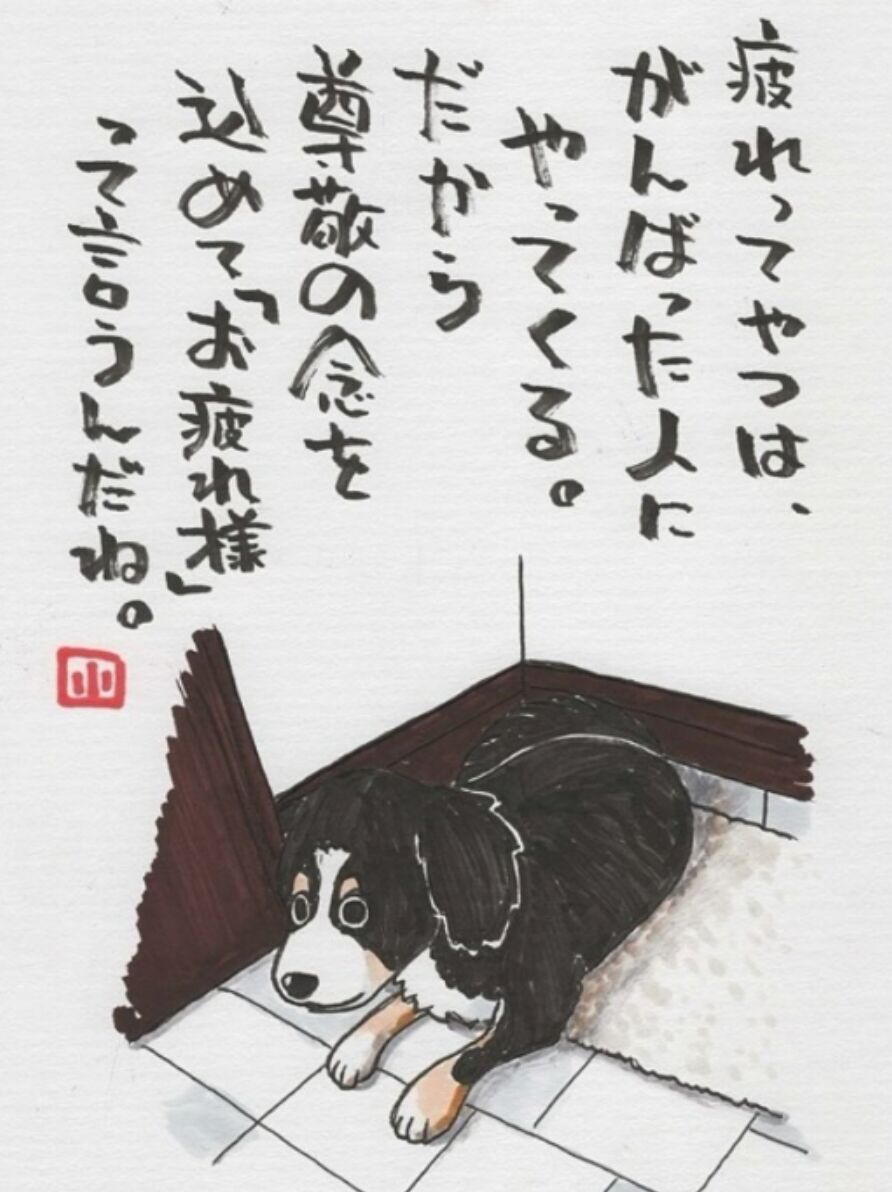 疲れってやつは、
がんばった人に
やってくる。
だから
尊敬の念を
込めて「お疲れ様」
って言うんだね。